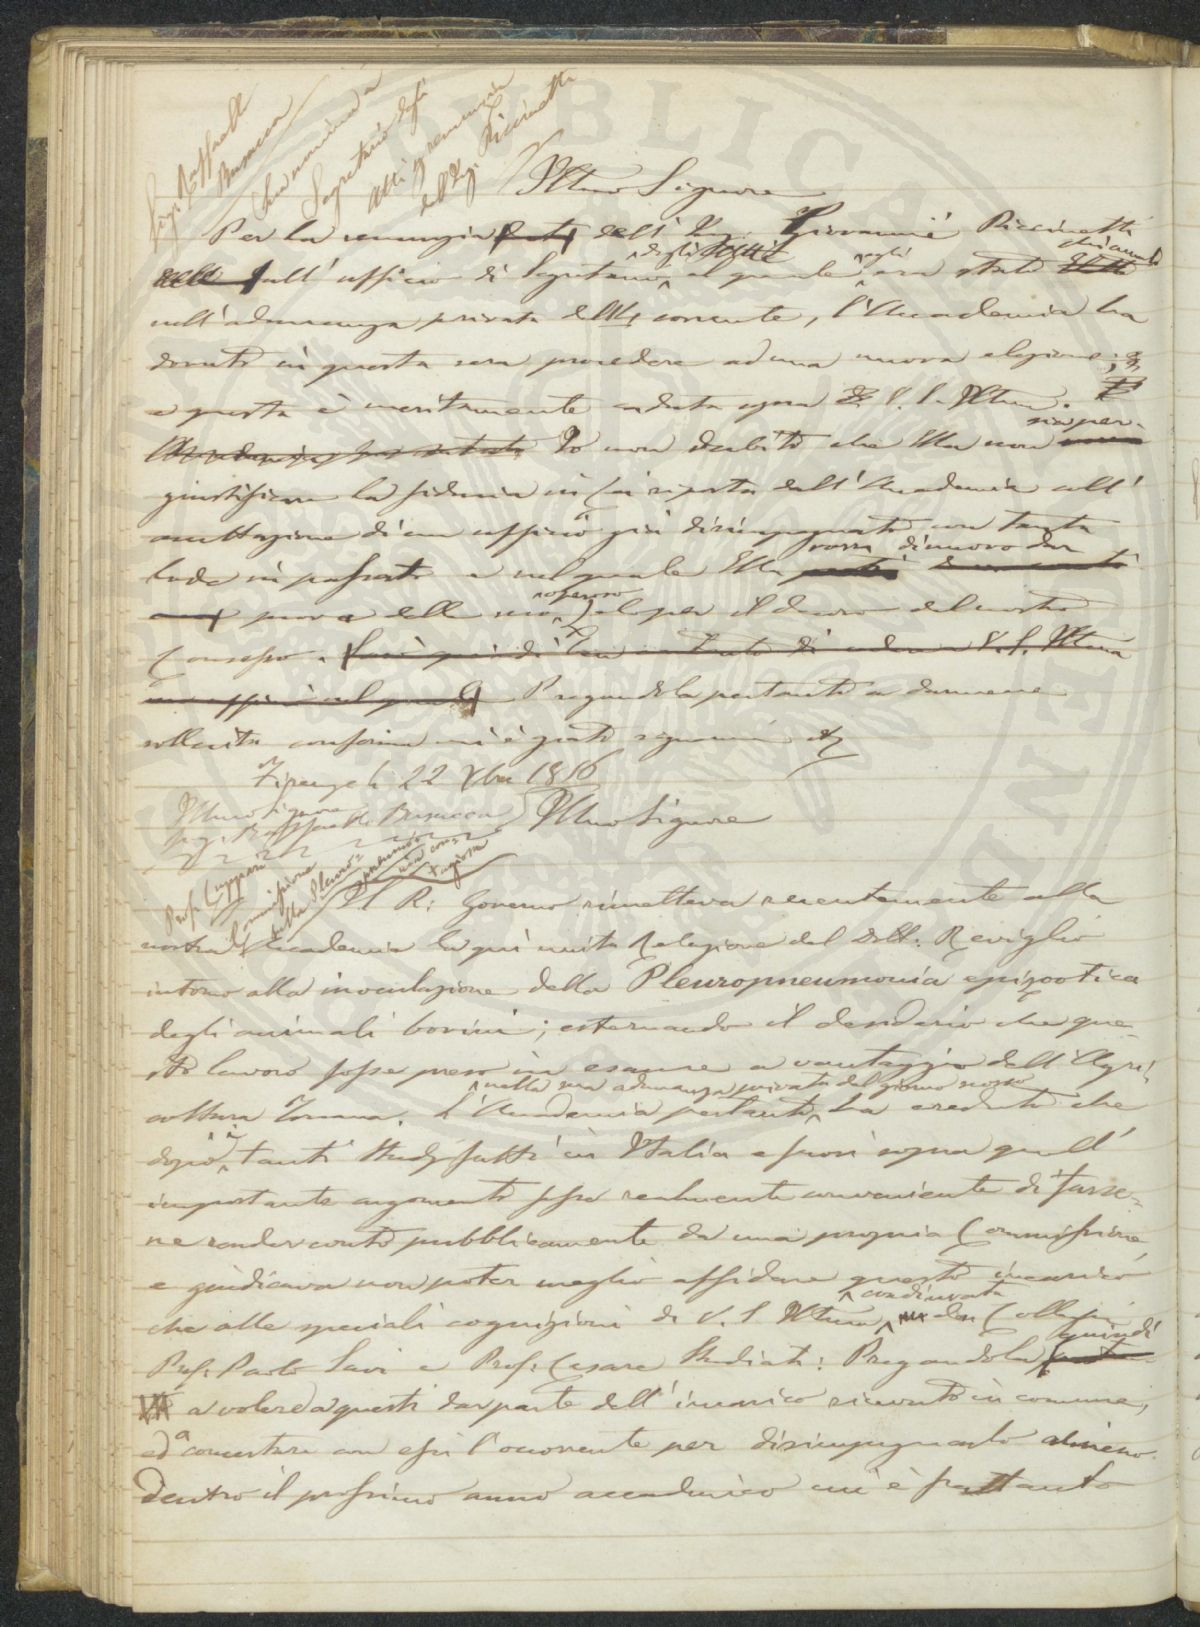 Sig. Raffaello
Busacca
Sua nomina a
Segretario degli
Atti per renunzia
dell'Ing. Piccinetti
Illmo Signore
Per la renunzia fatta dell'Ing. Giovanni Piccinetti
all'ufficio di Segretario degli Atti al quale egli era stato chiamato
nell'adunanza privata del corrente, l'Accademia ha
dovuto in questa sera procedere ad una nuova elezione;
e questa è meritamente caduta sopra V. S. Illma.
Io non dubito che Ella non sia per
giustificare la fiducia in Lei riposta dall'Accademia coll'
accettazione di un ufficio già disimpegnato con tanta
lode in passato e nel quale Ella vorrà di nuovo dar
prova della suo operoso zelo per il decoro del nostro
Consesso. Sarà quindi V. S. Illma
Pregandola pertanto a darmene
sollecita conferma mi è grato segnarmi
Firenze li 22 Xbre 1856
Illmo Signore
Sig. Raffaello Busacca
Illmo Signore
Prof. Cuppari
Commissione
sulla Pleuro=
pneumonia
con=
tagiosa
Il R: Governo rimetteva recentemente alla
nostra Accademia la qui unita Relazione del Dott: Reviglio
intorno alla inoculazione della Pleuropneumonia epizootica
degli animali bovini; esternando il desiderio che que=
sto lavoro fosse preso in esame a vantaggio dell'Agri=
coltura Toscana. L'Accademia pertanto nella sua adunanza privata del giorno ha creduto che
dopo i tanti studj fatti in Italia e fuori sopra quell'
importante argomento fosse realmente conveniente di farse=
ne render conto pubblicamente da una propria Commissione,
e giudicava non poter meglio affidare questo incarico
che alle speciali cognizioni di V. S. Illma coadiuvata dai Colleghi
Prof: Paolo Savi e Prof: Cesare Studiati: Pregandola quindi
a voler a questi dar parte dell'incarico ricevuto in comune,
ed a concertare con essi l'occorrente per disimpegnarlo almeno
dentro il prossimo anno accademico mi è frattanto